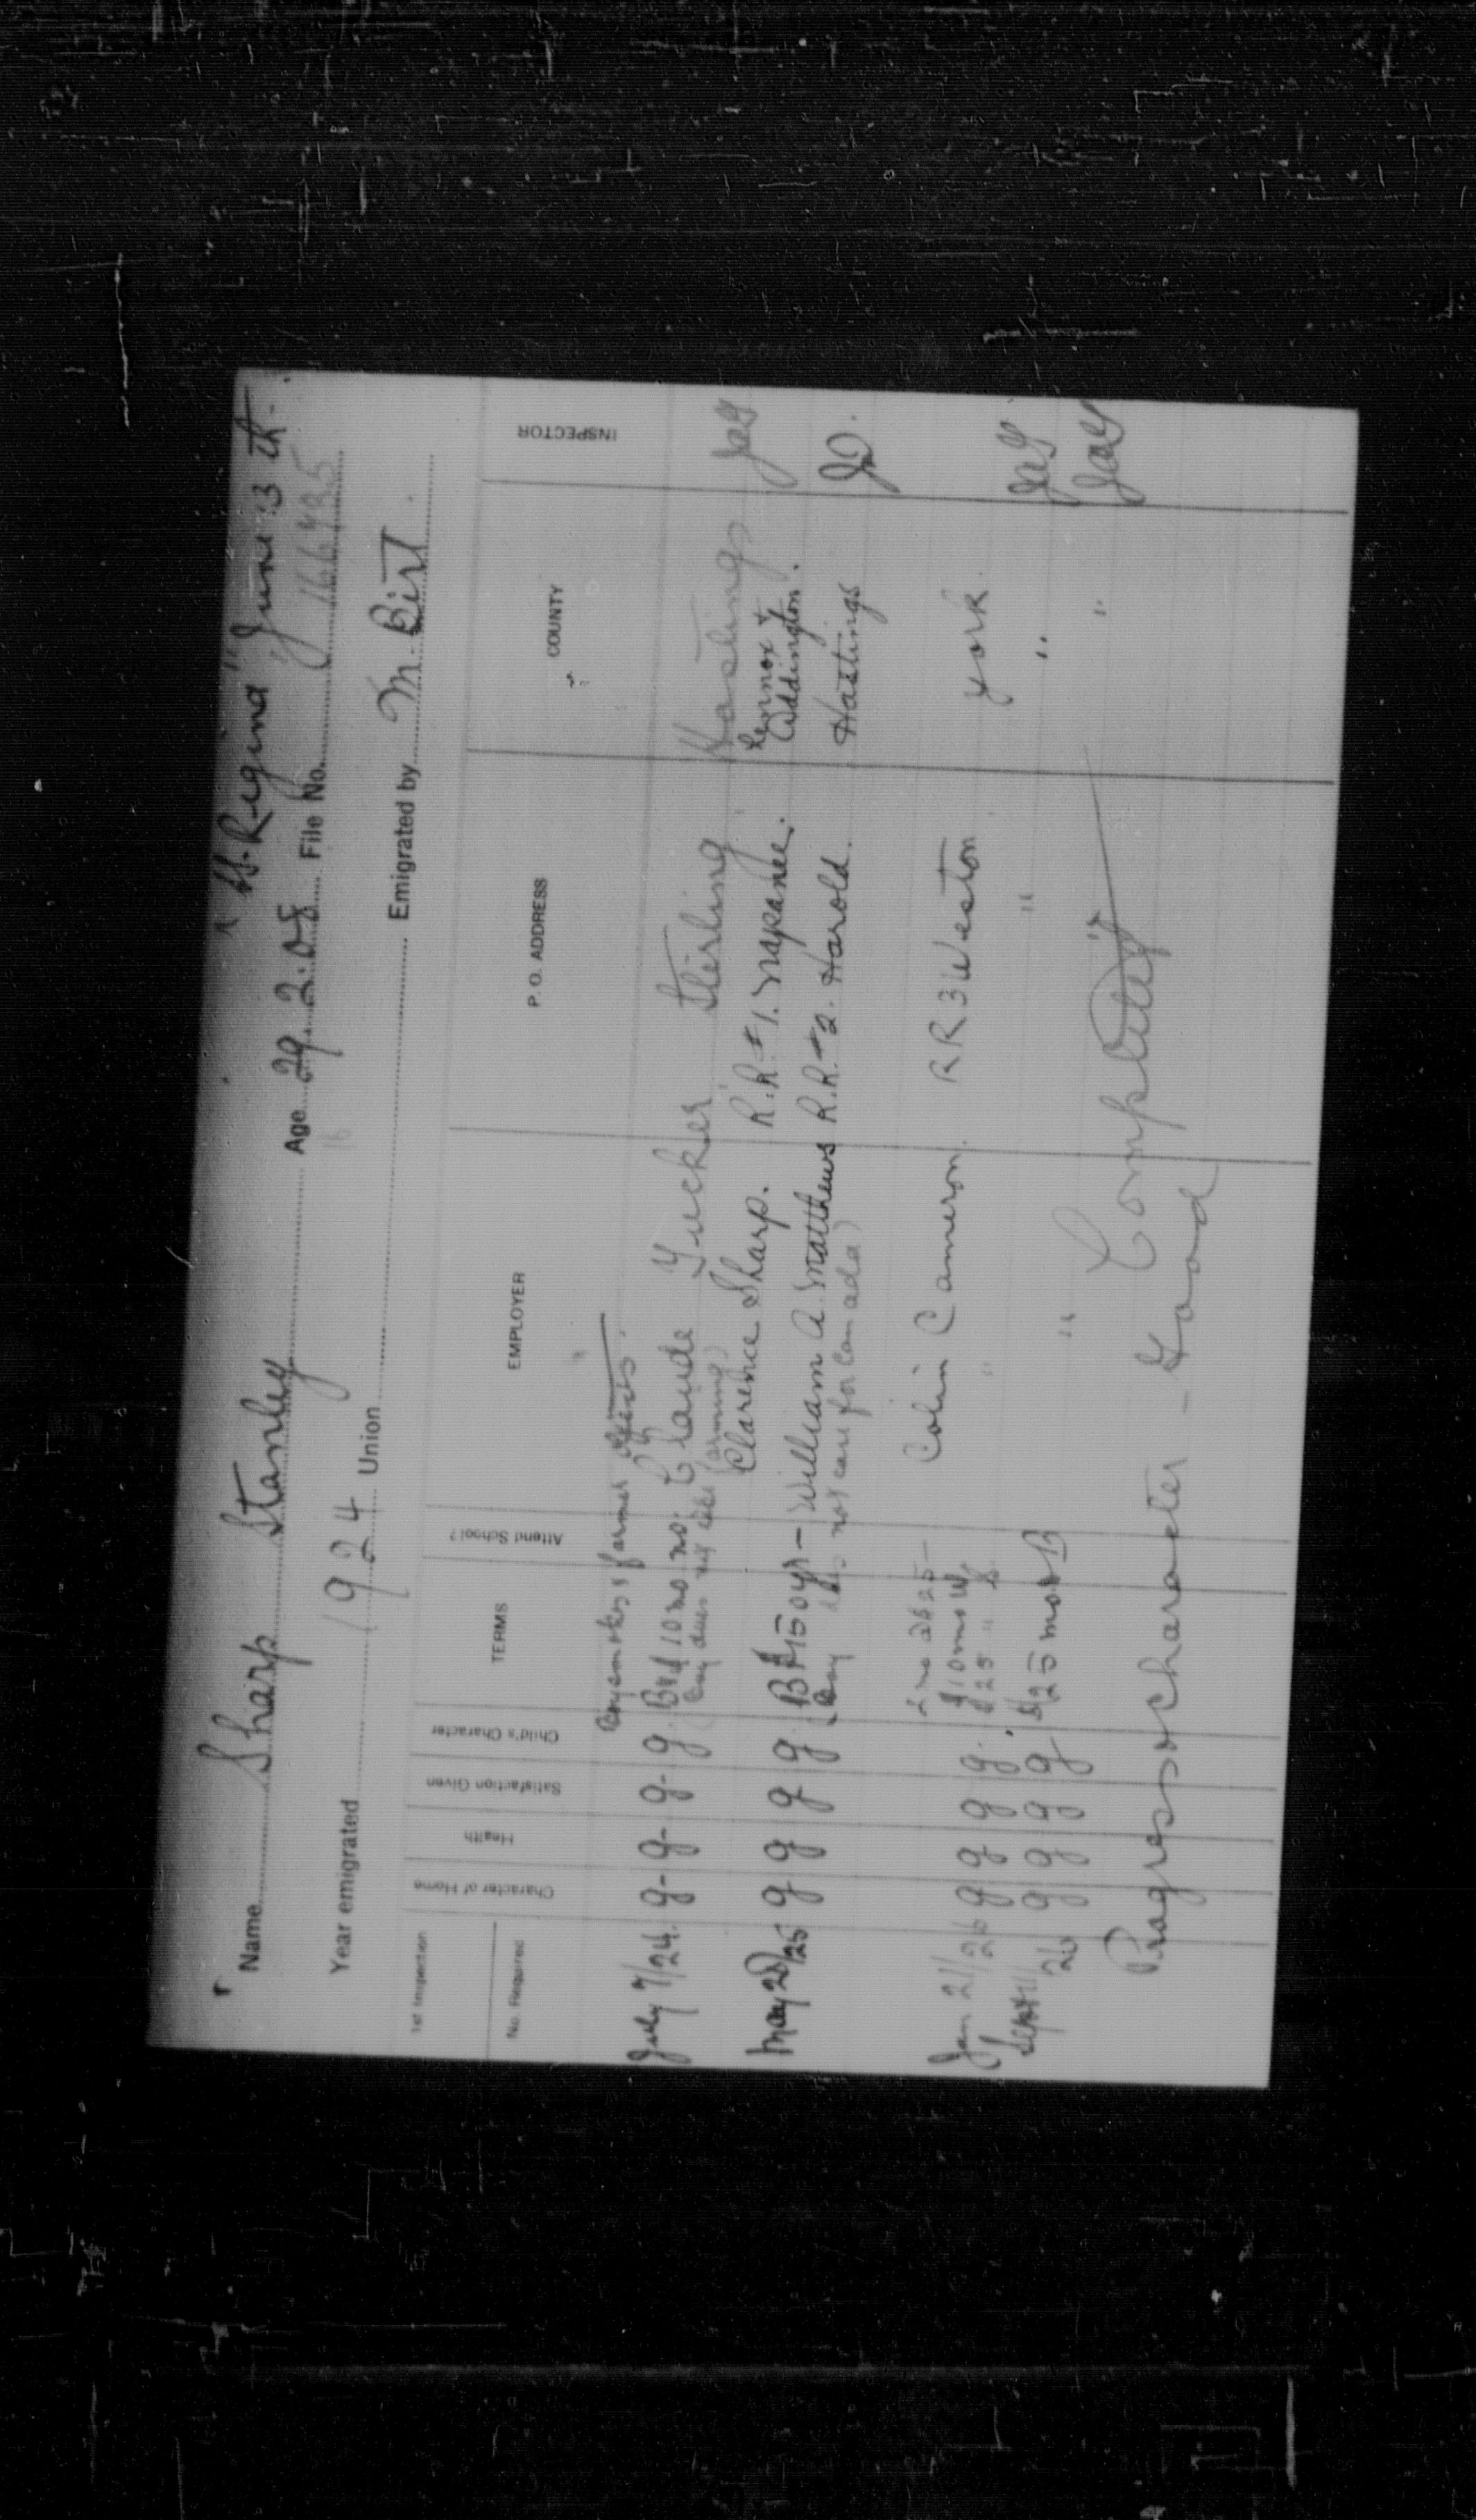 "SS. Regina" June 13 th.
Name Sharp Stanley Age 29. 2. 08 File No. 166435
16
Year emigrated 1924 Union Emigrated by M. Birt.
1st Inspection
No. Required
Character of Home
Health
Satisfaction Given
Child's Character
TERMS
Attend School?
EMPLOYER
P. O. ADDRESS
COUNTY
INSPECTOR
Boy smokes & farmer
July 7/24. g- g- g- g. B & 10 mo no. Claude Tucker Sterling Hastings JaG
(Boy does not like farming)
Clarence Sharp. R.R. #1. Napanee. Lennox & Addington.
May 20/25 g g g g. B $150 yr — William A. Matthews R.R. #2. Harold. Hastings JD.
(Boy does not care for Canada)
2 mo at 25 —
Jan 21/26 g g g g. $10 mo W Colin Cameron. RR 3 Weston York. JaG
$25 " S "
Sept 11/26 g g g g $25 mo B " " " JaG
" Completed " "
Progress & character - Good